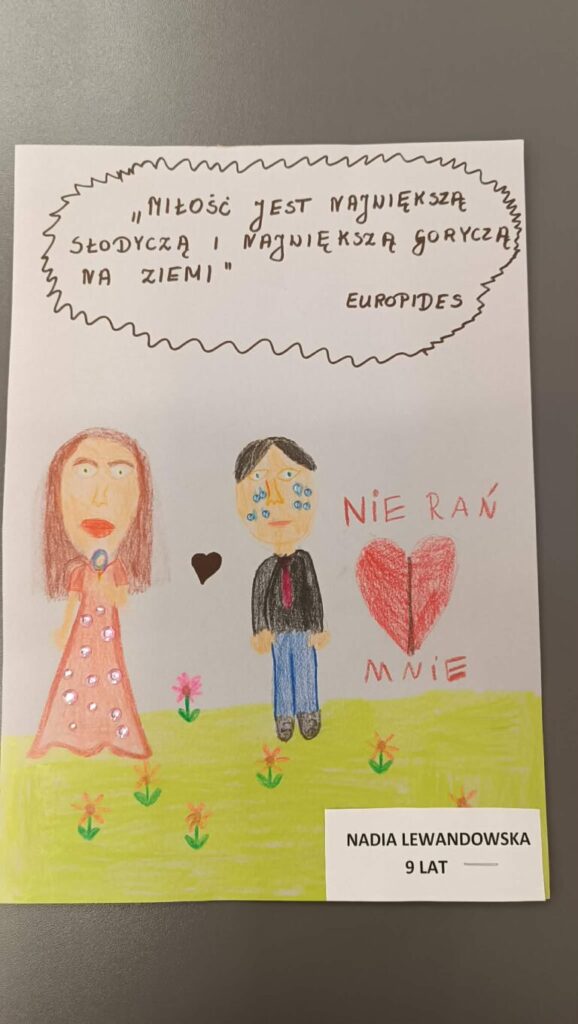 „MIŁOŚĆ JEST NAJWIĘKSZĄ
SŁODYCZĄ I NAJWIĘKSZĄ GORYCZĄ
NA ZIEMI"
EUROPIDES
NIE RAŃ
MNIE
NADIA LEWANDOWSKA
9 LAT